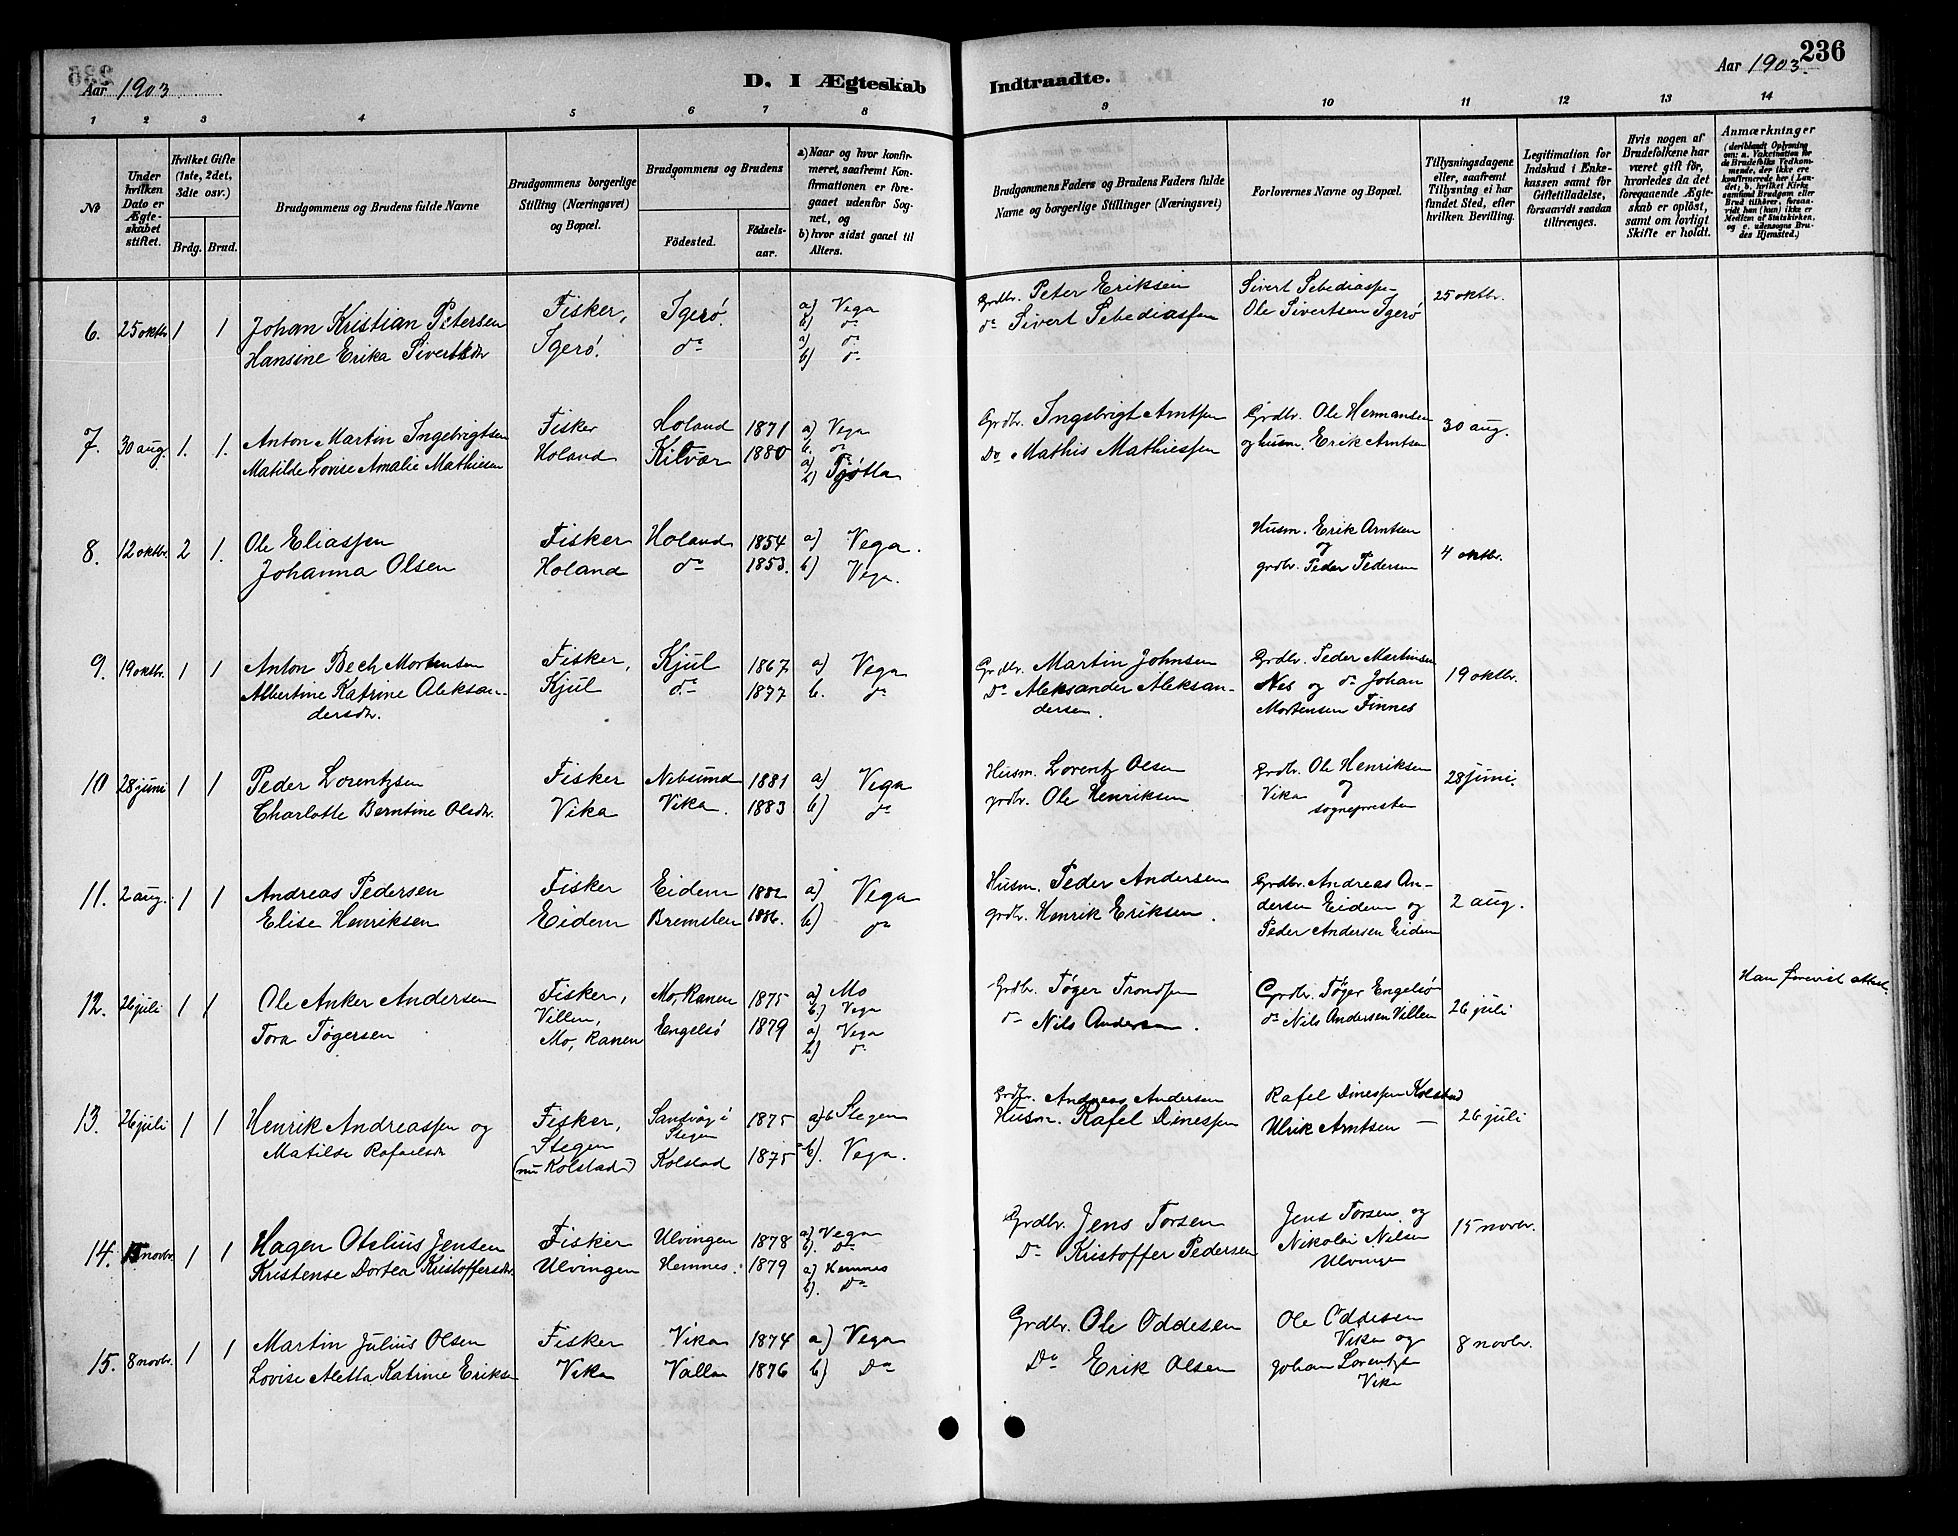 236
Aar 1903
D. I Ægteskab Indtraadte.
Aar 1903.
1 2 3 4 5 6 7 8 9 10 11 12 13 14
№
Under hvilken Dato er Ægteskabet stiftet.
Hvilket Gifte (1ste, 2det, 3die osv.)
Brdg. Brud.
Brudgommens og Brudens fulde Navne
Brudgommens borgerlige Stilling (Næringsvei) og Bopæl.
Brudgommens og Brudens
Födested. Födselsaar.
a) Naar og hvor konfirmeret, saafremt Konfirmationen er foregaaet udenfor Sognet, og
b) hvor sidst gaaet til Alters.
Brudgommens Faders og Brudens Faders fulde Navne og borgerlige Stillinger (Næringsvei)
Forlovernes Navne og Bopæl.
Tillysningsdagene eller, saafremt Tillysning ei har fundet Sted, efter hvilken Bevilling.
Legitimation for Indskud i Enkekassen samt for Giftetilladelse, forsaavidt saadan tiltrænges.
Hvis nogen af Brudefolkene har været gift för, hvorledes da det foregaaende Ægteskab er oplöst, samt om lovligt Skifte er holdt.
Anmærkninger (deriblandt Oplysning om: a. Vakcination for de Brudefolks Vedkommende, der ikke ere konfirmerede her i Landet; b. hvilket Kirkesamfund Brudgom eller Brud tilhörer, forsaavidt han (hun) ikke er Medlem af Statskirken, og c. udensogns Brudes Hjemsted.)
6. 25 oktbr 1 1 Johan Kristian Petersen Fisker, Igerø. a) Vega Grdbr. Peter Eriksen Sivert Sebediassen 25 oktbr.
b) do
Hansine Erika Sivertsdtr Igerø. do a) do do Sivert Sebediassen Ole Sivertsen Igerø
b) do
7. 30 aug. 1. 1. Anton Martin Ingebrigtsen Fisker Holand 1871 a) Vega Grdbr. Ingebrigt Arntsen Grdbr. Ole Hermansen 30 aug.
b. do
Matilde Lovise Amalie Mathisen Holand Kilvær 1880 a) do Do Mathis Mathiessen og husm. Erik Arntsen
b) Tjøtta
8. 12 oktbr. 2 1. Ole Eliassen Fisker Holand 1854 a) Vega. Husm. Erik Arntsen 4 oktbr.
og
Johanna Olsen Holand do 1853. b) Vega. grdbr. Peder Pedersen
9. 19 oktbr. 1 1 Anton Bech Mortensen Fisker, Kjul 1867 a) Vega Grdbr. Martin Johnsen Grdbr. Peder Martinsen 19 oktbr.
Albertine Katrine Aleksan- Kjul do 1877 b. do Do Aleksander Aleksan- Nes og do Johan
dersdtr. dersen. Mortensen Finnes
10 28 juni 1 1 Peder Lorentzsen Fisker Nebsund 1881 a) Vega Husm. Lorentz Olsen Grdbr. Ole Henriksen 28 juni.
Charlotte Berntine Olsdtr. Vika Vika. 1883 b) do grdbr. Ole Henriksen Vika og
sognepresten
11. 2 aug. 1 1 Andreas Pedersen Fisker Eidem 1882 a) Vega Husm. Peder Andersen Grdbr. Andreas An- 2 aug.
Elise Henriksen Eidem Bremsten 1886. b) do grdbr. Henrik Eriksen. dersen Eidem og
Peder Andersen Eidem
12. 26 juli 1 1 Ole Anker Andersen Fisker, Mo, Ranen 1875 a) Mo Grdbr. Tøger Trondsen Grdbr. Tøger Engelsø 26 juli Han forevist attest.
Villen, b.) Vega
Tora Tøgersen Mo, Ranen Engelsø 1879 a) Vega do Nils Andersen. do Nils Andersen Villen
b) do
13. 26 juli 1 1 Henrik Andreassen og Fisker, Sandvåg i Stegen 1875 a) b Stegen Grdbr. Andreas Andersen Rafel Dinessen Kolstad 26 juli
Matilde Rafaelsdtr Stegen Kolstad 1875 b). Vega. Husm. Rafel Dinessen Ulrik Arntsen —
(nu Kolstad)
14. 15 novbr. 1 1 Hagen Otelius Jensen Fisker Ulvingen 1878 a) Vega Grdbr. Jens Torsen Jens Torsen og 15 novbr.
b). Do
Kristense Dortea Kristoffersdtr. Ulvingen Hemnes. 1879 a) Hemnes Do Kristoffer Pedersen Nikolai Nilsen
b). Do Ulvingen
15. 8 novbr. 1 1 Martin Julius Olsen Fisker Vika 1874 a) Vega Grdbr. Ole Oddesen Ole Oddesen 8 novbr.
Vika og
Lovise Aletta Katrine Eriksen Vika Valla 1876 b) Do Do Erik Olsen Johan Lorentzs
Vika